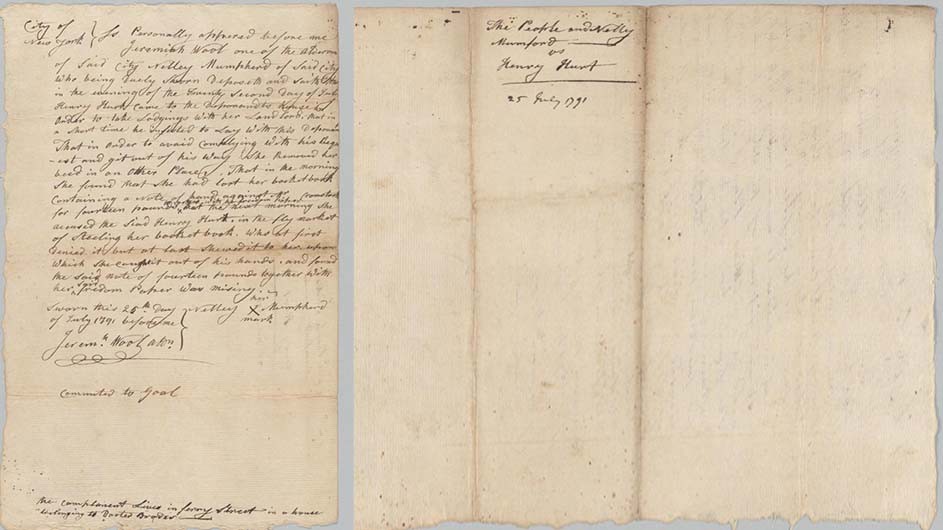 City of
New York } Ss Personally appeared before me
Jeremiah Wool one of the Alderman
of Said City Nelley Mumpherd of Said City
Who being Duely Sworn Deposeth and saith that
in the evening of the Twenty Second Day of July
Henry Hurt came to the Deponants House in
Order to take Lodgings with her Landlord, that in
a short time he Insisted to Lay With this Deponant
That in order to avaid Complying With his Requ
-est and git out of his Way She Removed her
bead in an Other Place, That in the morning
She found that She had lost her pocketbook
Containing a Note of hand against
for fourteen pounds, that the next morning She
accused the Said Henry Hurt, in the fly market
of Steeling her pocket book. Who at first
denied it, but at last Shewed it to her, upon
Which She caught it out of his hands, and found
the said Note of fourteen pounds together With
her said fredom Paper Was missing.
Sworn this 25th day } Nelley her X mark Mumpherd
of July 1791 before me
Jeremh. Wool Aldn.
Commited to Goal
the Complanent Lives in ferry Street in a house
belonging to
The People and Nelly
Mumford
vs
Henry Hurt
25 July 1791